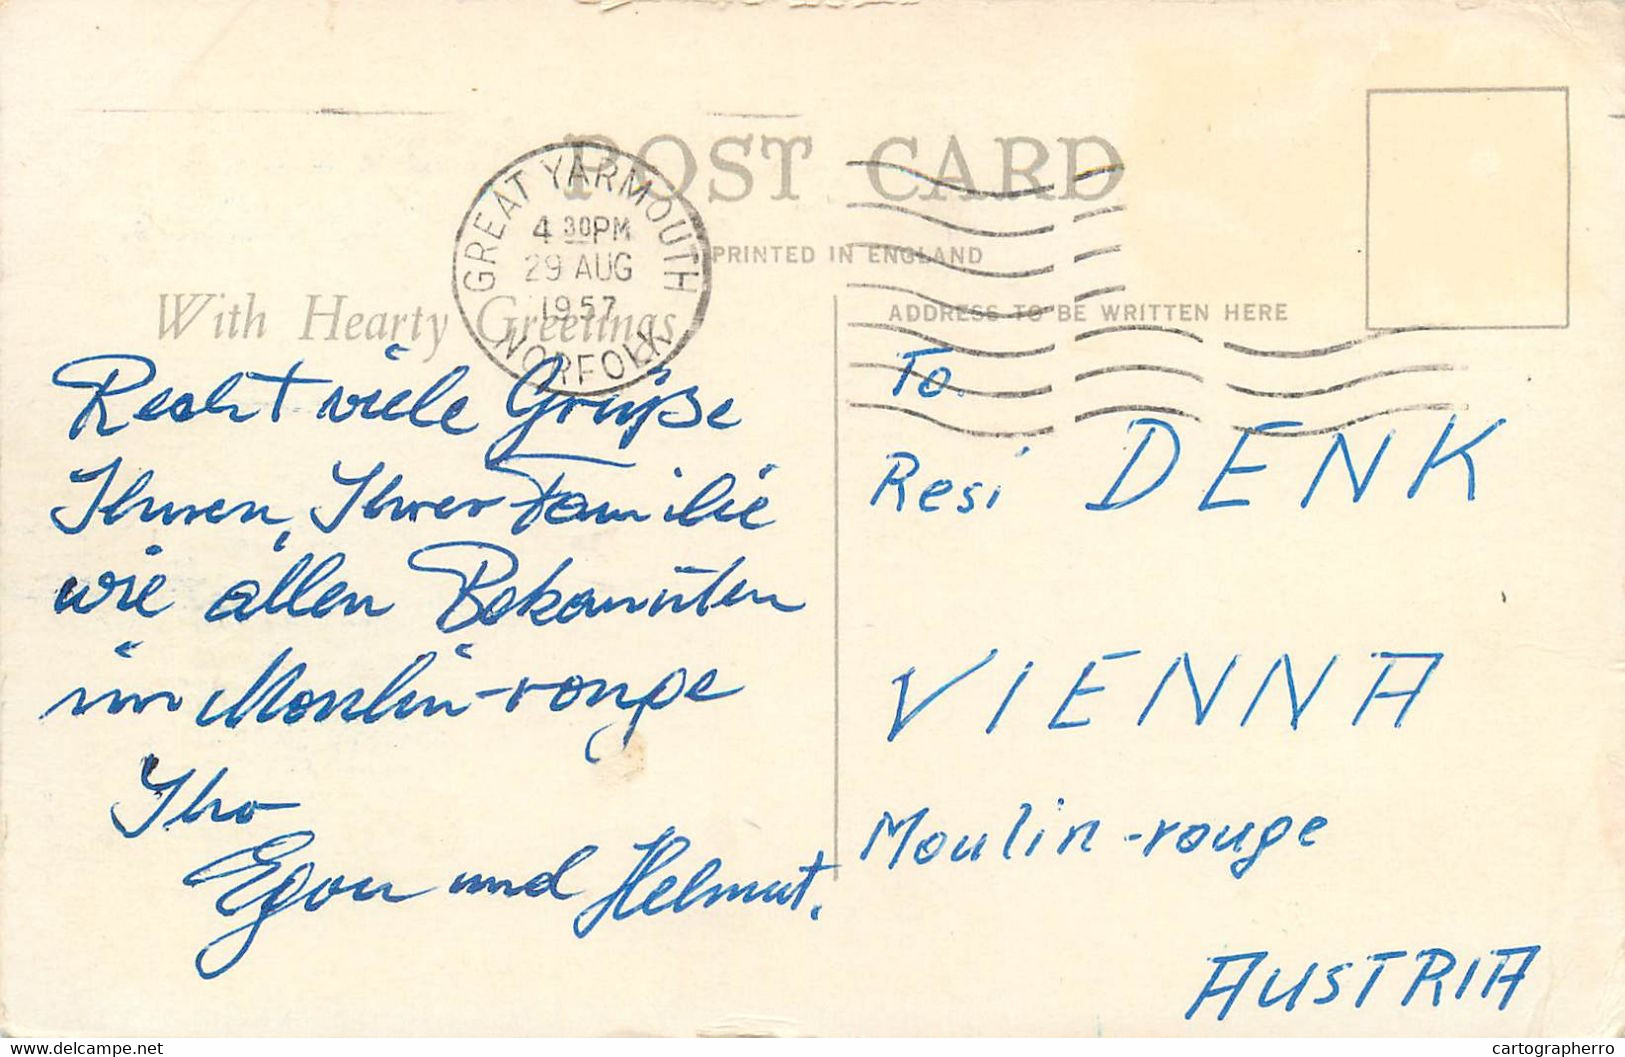 POST CARD
GREAT YARMOUTH
4 30PM
29 AUG
1957
NORFOLK
PRINTED IN ENGLAND
With Hearty Greetings
ADDRESS TO BE WRITTEN HERE
Recht viele Grüße
Ihnen, Ihrer Familie
wie allen Bekannten
im Moulin-rouge
Ihre
Egon und Helmut.
To.
Resi DENK
VIENNA
Moulin-rouge
AUSTRIA
www.delcampe.net
cartographerro